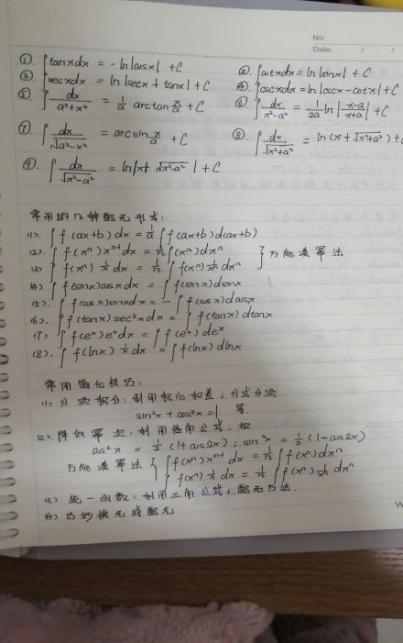 No.
Date. / /
①. ∫tanxdx = -ln|cosx| + C
② ∫cotxdx = ln|sinx| + C
③ ∫secxdx = ln|secx + tanx| + C
④. ∫cscxdx = ln|cscx - cotx| + C
⑤ ∫dx/(a²+x²) = 1/a arctan x/a + C
⑥ ∫dx/(x²-a²) = 1/2a ln|(x-a)/(x+a)| + C
⑦ ∫dx/√(a²-x²) = arcsin x/a + C
⑧. ∫dx/√(x²+a²) = ln(x+√(x²+a²)) + C
⑨. ∫dx/√(x²-a²) = ln|x+√(x²-a²)| + C
常用的几种配元形式:
(1). ∫f(ax+b)dx = 1/a ∫f(ax+b)d(ax+b)
(2). ∫f(xⁿ)xⁿ⁻¹dx = 1/n ∫f(xⁿ)dxⁿ
(3) ∫f(xⁿ) 1/x dx = 1/n ∫f(xⁿ) 1/xⁿ dxⁿ } 万能凑幂法
(4) ∫f(sinx)cosxdx = ∫f(sinx)dsinx
(5). ∫f(cosx)sinxdx = -∫f(cosx)dcosx
(6). ∫f(tanx)sec²xdx = ∫f(tanx)dtanx
(7) ∫f(eˣ)eˣdx = ∫f(eˣ)deˣ
(8). ∫f(lnx) 1/x dx = ∫f(lnx)dlnx
常用简化技巧:
(1) 分项积分:利用积化和差;分式分项
sin²x + cos²x = 1 等.
(2). 降低幂次:利用倍角公式,如
cos²x = 1/2(1+cos2x); sin²x = 1/2(1-cos2x)
万能凑幂法 { ∫f(xⁿ)xⁿ⁻¹dx = 1/n ∫f(xⁿ)dxⁿ
∫f(xⁿ) 1/x dx = 1/n ∫f(xⁿ) 1/xⁿ dxⁿ
(3) 统一函数:利用三角公式;配元方法.
(4) 巧妙换元或配元